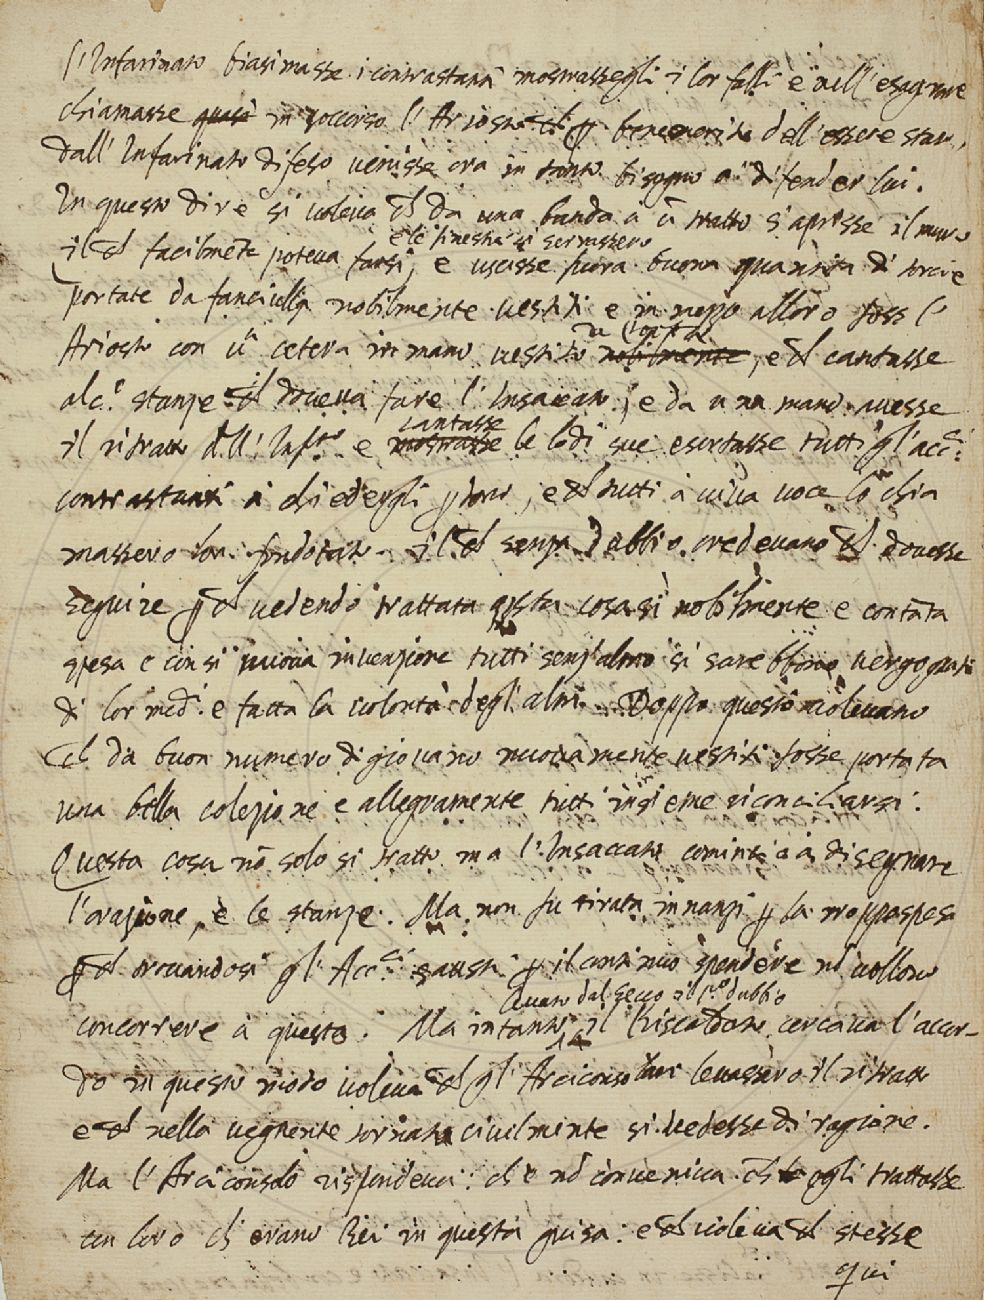 l'Infarinato biasimasse i contrastanti mostrassegli i lor falli e nell'esagerare
chiamasse quasi in soccorso l'Ariosto che p benemerito dell'essere stato
dall'Infarinato difeso venisse ora in tanto bisogno a difender lui.
In questo dire si voleva ch da una banda a ū tratto s'aprisse il muro
e le finestre si serrassero
il ch facilmēte poteva farsi, e uscisse fuora buona quantità di torcie
portate da fanciulli nobilmente vestiti e in mezzo alloro foss l'
Ariosto con ūa cetera in mano vestito nobilmente, e ch cantasse
alc.e stanze ch doveva fare l'Insaccato, e da una mano avesse
cantasse
il ritratto dell'Inf.to e mostrasse le lodi sue esortasse tutti gl'acc.i
contrastanti a chiedergli pdono, e ch tutti a viva voce lo chia
massero lor. il ch senza dubbio credevano ch dovesse
seguire p ch vedendo trattata qsta cosa sì nobilmente e con tāta
spesa e con si nuova invenzione tutti senz'altro si sarebbono vergognati
di lor med.i e fatta la volontà degl'altri. Doppo questo volevano
ch da buon numero di giovani nuovamente vestiti fosse portata
una bella colezione e allegramente tutti insieme riconciliarsi.
Questa cosa nō solo si trattò ma l'Insaccato cominciò a disegnare
l'orazione, e le stanze. Ma non fu tirata innanzi p la troppa spesa
p ch trovandosi gl'Acc.i esausti p il continuo spendere nō vollono
levato dal Secco il p.o dubbio
concorrere a questo. Ma intanto il Riscaldato cercava l'accor-
do in questo modo voleva ch gl'Arciconsolari levassero il ritratto
e ch nella vegnente tornata civilmente si vedesse di ragione.
Ma l'Arciconsolo rispondeva: ch'e nō conveniva ch egli trattasse
con loro ch'erano Rei in questa guisa: e ch voleva ch stesse
qui